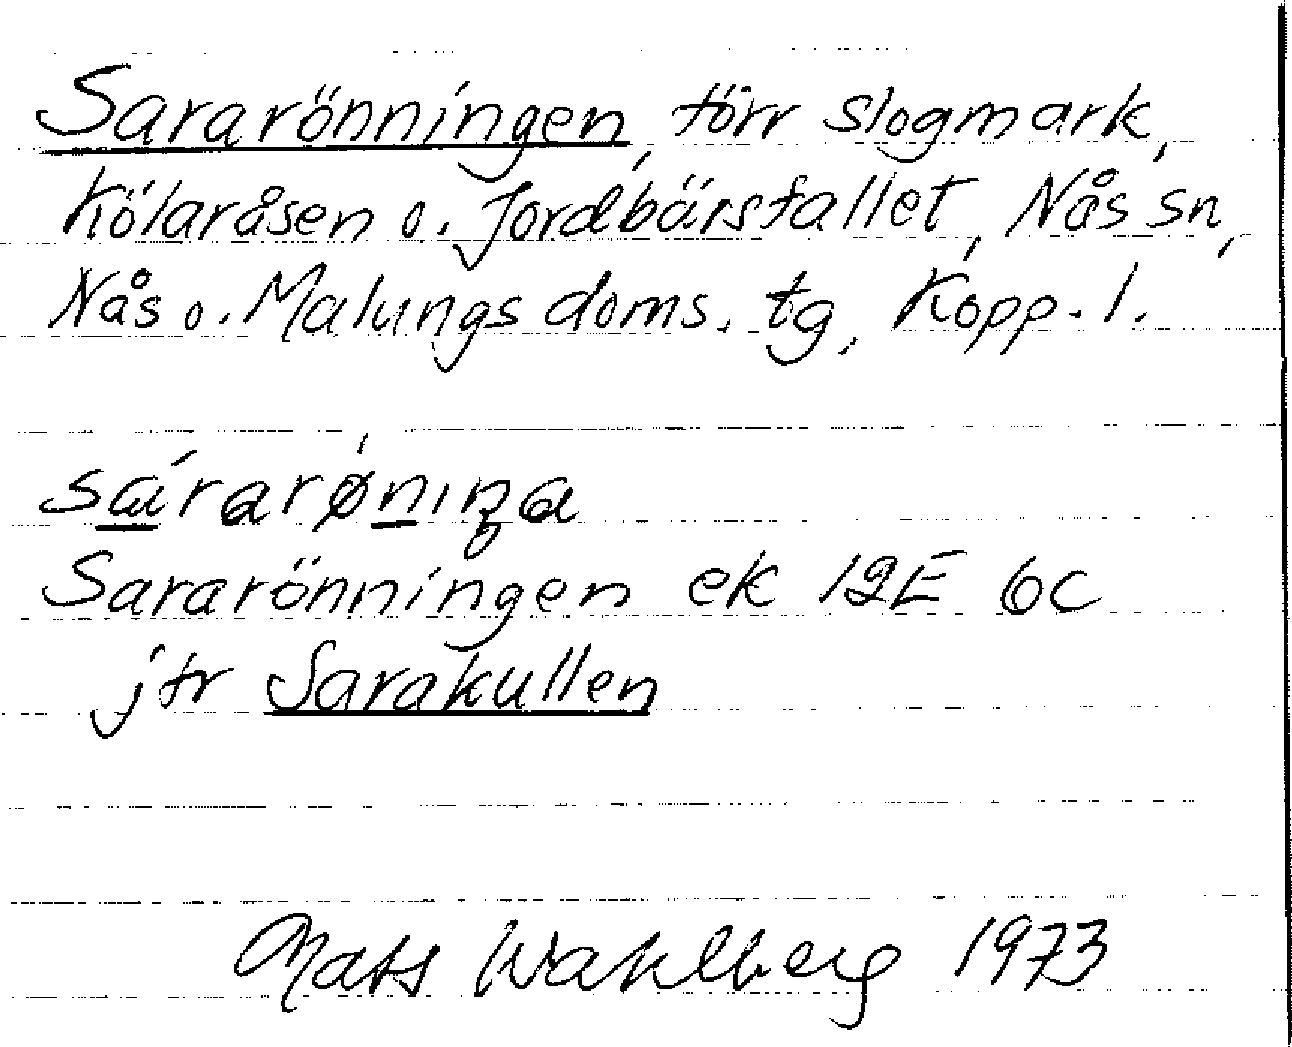 Sararönningen, torr slogmark,
Kölaråsen o. Jordbärsfallet, Nås sn,
Nås o. Malungs doms. tg, Kopp. l.
sárarø̀nıŋa
Sararönningen ek 12E 6c
jfr Sarakullen
Mats Wahlberg 1973